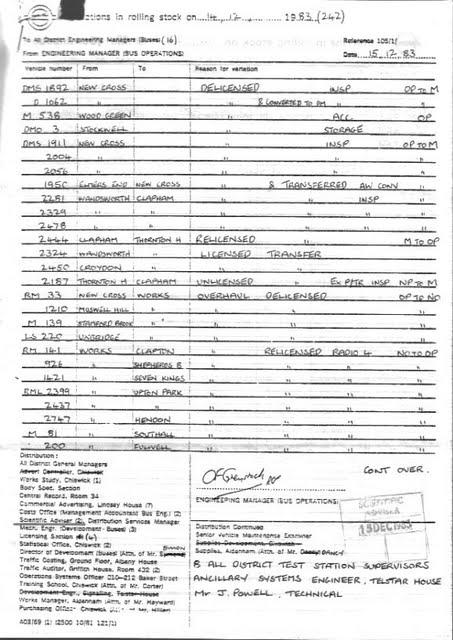 ctions in rolling stock on 14. 12. 1983 (242)
To All District Engineering Managers (Buses) (16)
Reference 105/1/
From ENGINEERING MANAGER (BUS OPERATIONS)
Date 15.12.83
Vehicle number From To Reason for variation
DMS 1892 NEW CROSS DELICENSED INSP OP TO M
D 1062 " " & CONVERTED TO DM " "
M 538 WOOD GREEN " ACC. OP
DMO 3 STOCKWELL " STORAGE
DMS 1911 NEW CROSS " INSP OP TO M
2004 " " " "
2056 " " " "
1950 ELMERS END NEW CROSS " & TRANSFERRED AW CONV "
2251 WANDSWORTH CLAPHAM " " INSP "
2329 " " " " " "
2478 " " " " " "
2444 CLAPHAM THORNTON H RELICENSED " M TO OP
2324 WANDSWORTH " LICENSED TRANSFER
2450 CROYDON " " "
2187 THORNTON H CLAPHAM UNLICENSED " EX P/TR INSP NP TO M
RM 33 NEW CROSS WORKS OVERHAUL DELICENSED OP TO NO
1210 MUSWELL HILL " " " "
M 139 STAMFORD BROOK " " " "
LS 220 UXBRIDGE " " " "
RM 141 WORKS CLAPTON " RELICENSED RADIO 4 NO TO OP
926 " SHEPHERDS B " " " "
1421 " SEVEN KINGS " " " "
RML 2399 " UPTON PARK " " " "
2437 " " " " " "
2747 " HENDON " " " "
M 81 " SOUTHALL " " " "
200 " FULWELL " " " "
CONT OVER.
ENGINEERING MANAGER (BUS OPERATIONS)
SCIENTIFIC
ADVISER
15 DEC 1983
Distribution:
All District General Managers
Advert Controller, Chiswick
Works Study, Chiswick (1)
Body Spec. Section
Central Record, Room 34
Commercial Advertising, Lindsay House (7)
Costs Office (Management Accountant Bus Eng.) (2)
Scientific Adviser (2), Distribution Services Manager
Mech. Engr. (Development - Buses) (3)
Licensing Section (4)
Statistical Office, Chiswick (2)
Director of Development (Buses) (Attn. of Mr.
Traffic Costing, Ground Floor, Albany House
Traffic Auditor, Griffith House, Room 432 (2)
Operations Systems Officer 210-212 Baker Street
Training School, Chiswick (Attn. of Mr. Carter)
Development Engr., Signalling, Telstar House
Works Manager, Aldenham (Attn. of Mr. Hayward)
Purchasing Office
A03/69 (1) (2500 10/81 121/1)
Distribution Continued
Senior Vehicle Maintenance Examiner
Supplies Development, Chiswick
Supplies, Aldenham (Attn. of Mr.
8 ALL DISTRICT TEST STATION SUPERVISORS
ANCILLARY SYSTEMS ENGINEER, TELSTAR HOUSE
Mr J. POWELL, TECHNICAL